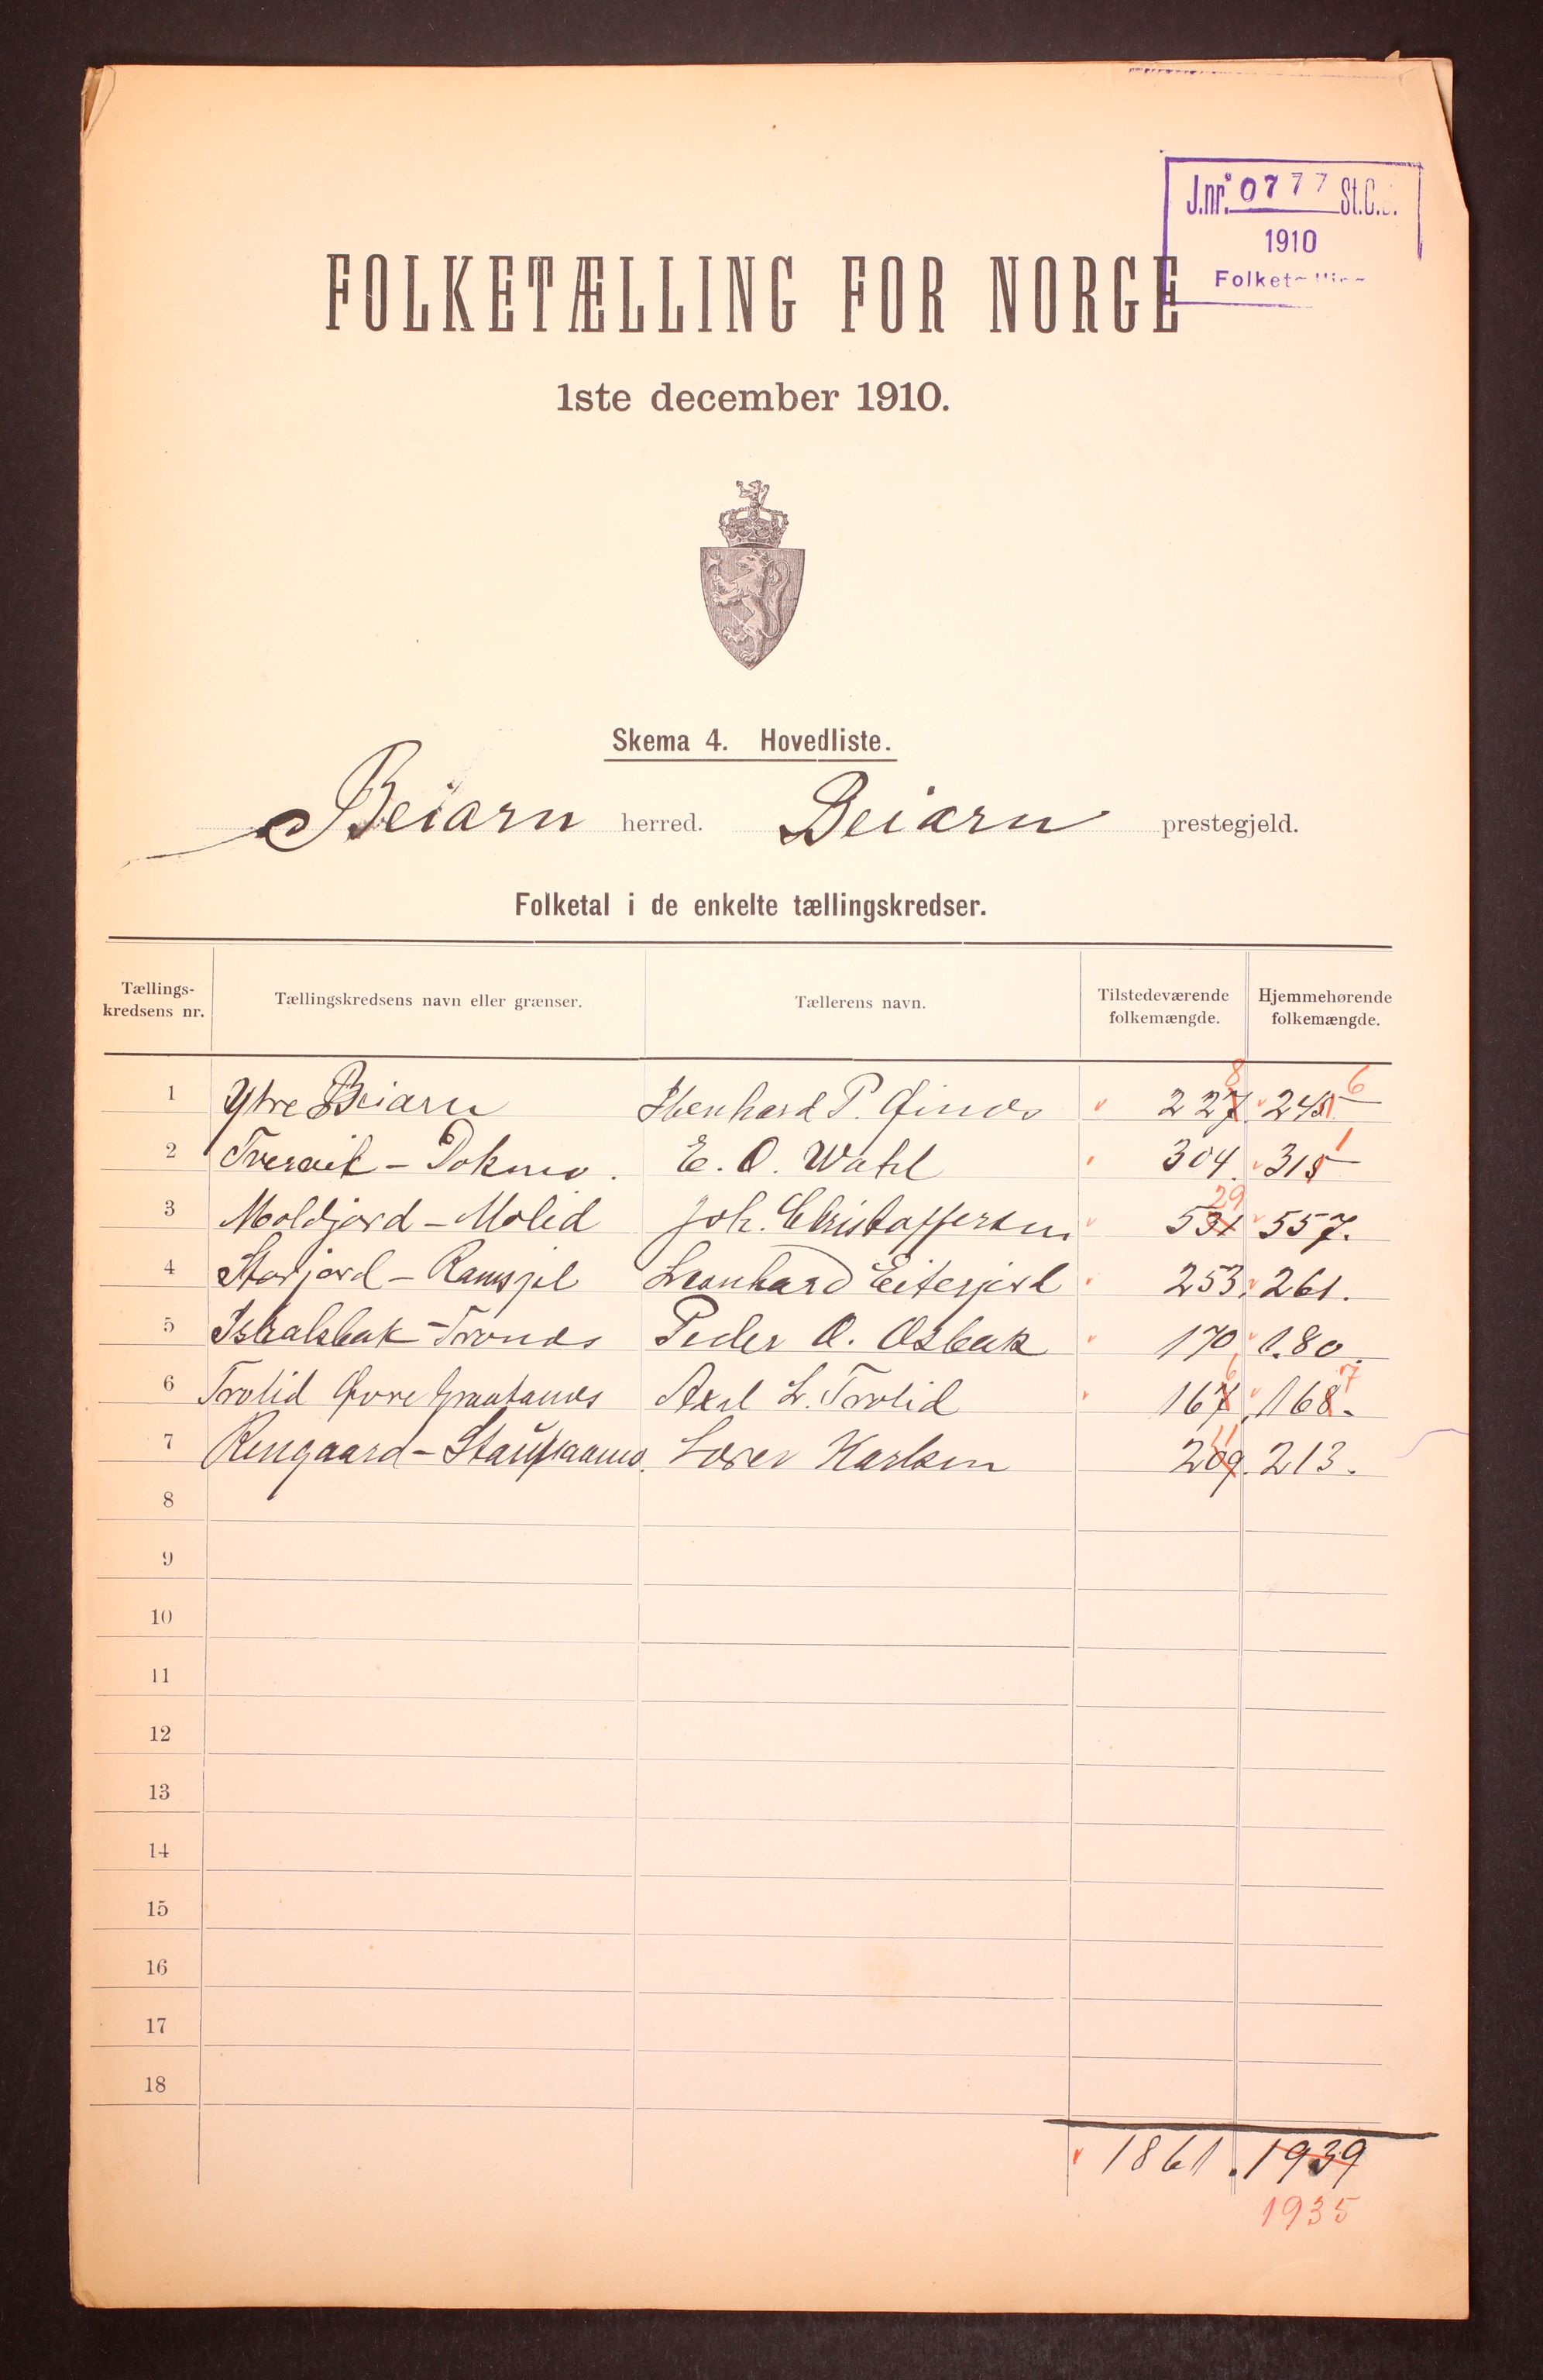 J.nr. 0777 St.C.
1910
Folket
FOLKETÆLLING FOR NORGE
1ste december 1910.
Skema 4. Hovedliste.
Beiarn herred. Beiarn prestegjeld.
Folketal i de enkelte tællingskredser.
Tællings-kredsens nr. Tællingskredsens navn eller grænser. Tællerens navn. Tilstedeværende folkemængde. Hjemmehørende folkemængde.
8 6
1 Ytre Beiarn P. 227 245
1
2 Tvervik - Dokmo. E. O. Wahl 304. 315
29
3 Moldjord - Molid Joh. Christoffersen 531 557.
4 Storjord - Ramsjel Leonhard Eiterjord 253. 261.
5 Peder O. Osbak 170 180.
6 7
6 Trolid Øvre Graatanes Axel L. Trolid 167 168.
11
7 Rengaard - Karlsen 209. 213.
8
9
10
11
12
13
14
15
16
17
18
1861. 1939
1935